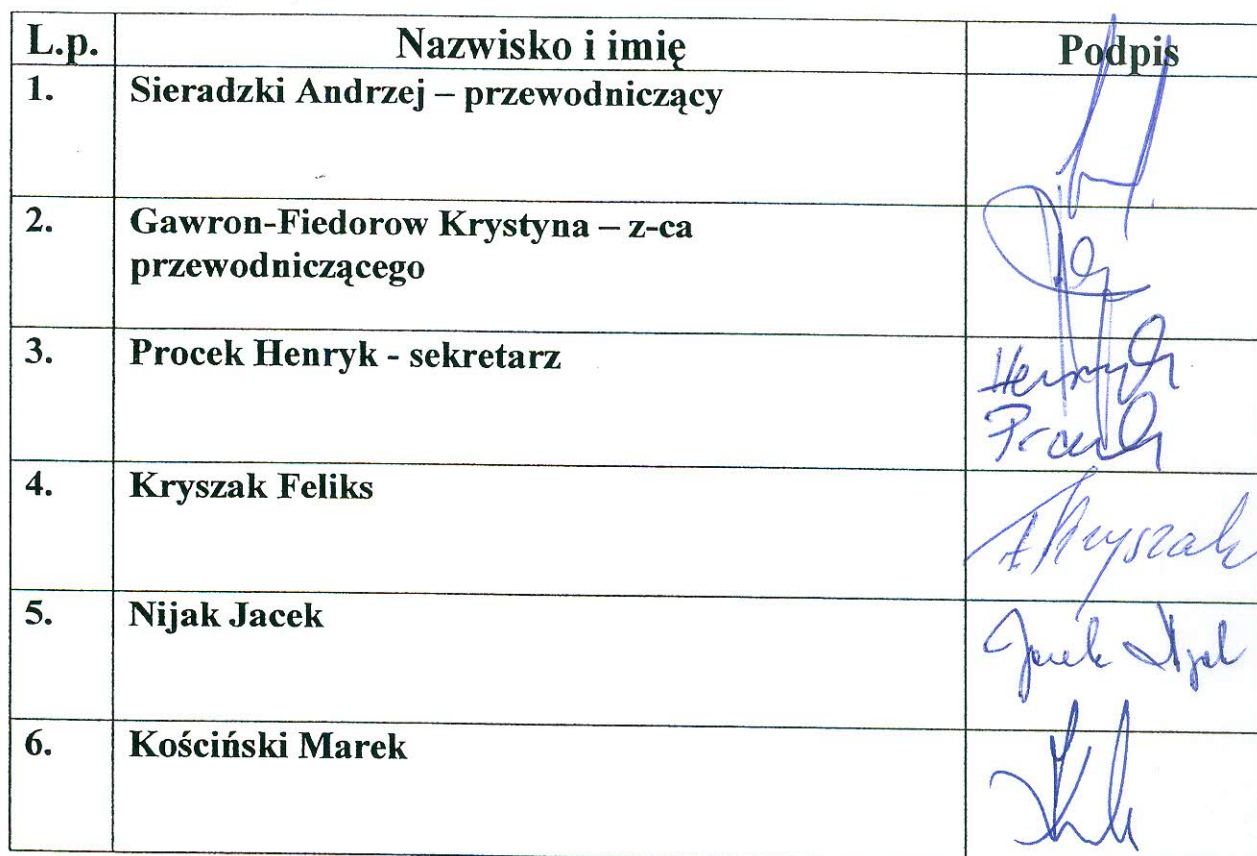 L.p. Nazwisko i imię Podpis
1. Sieradzki Andrzej – przewodniczący
2. Gawron-Fiedorow Krystyna – z-ca
przewodniczącego
3. Procek Henryk - sekretarz
Henryk
Procek
4. Kryszak Feliks F Kryszak
5. Nijak Jacek Jacek Nijak
6. Kościński Marek